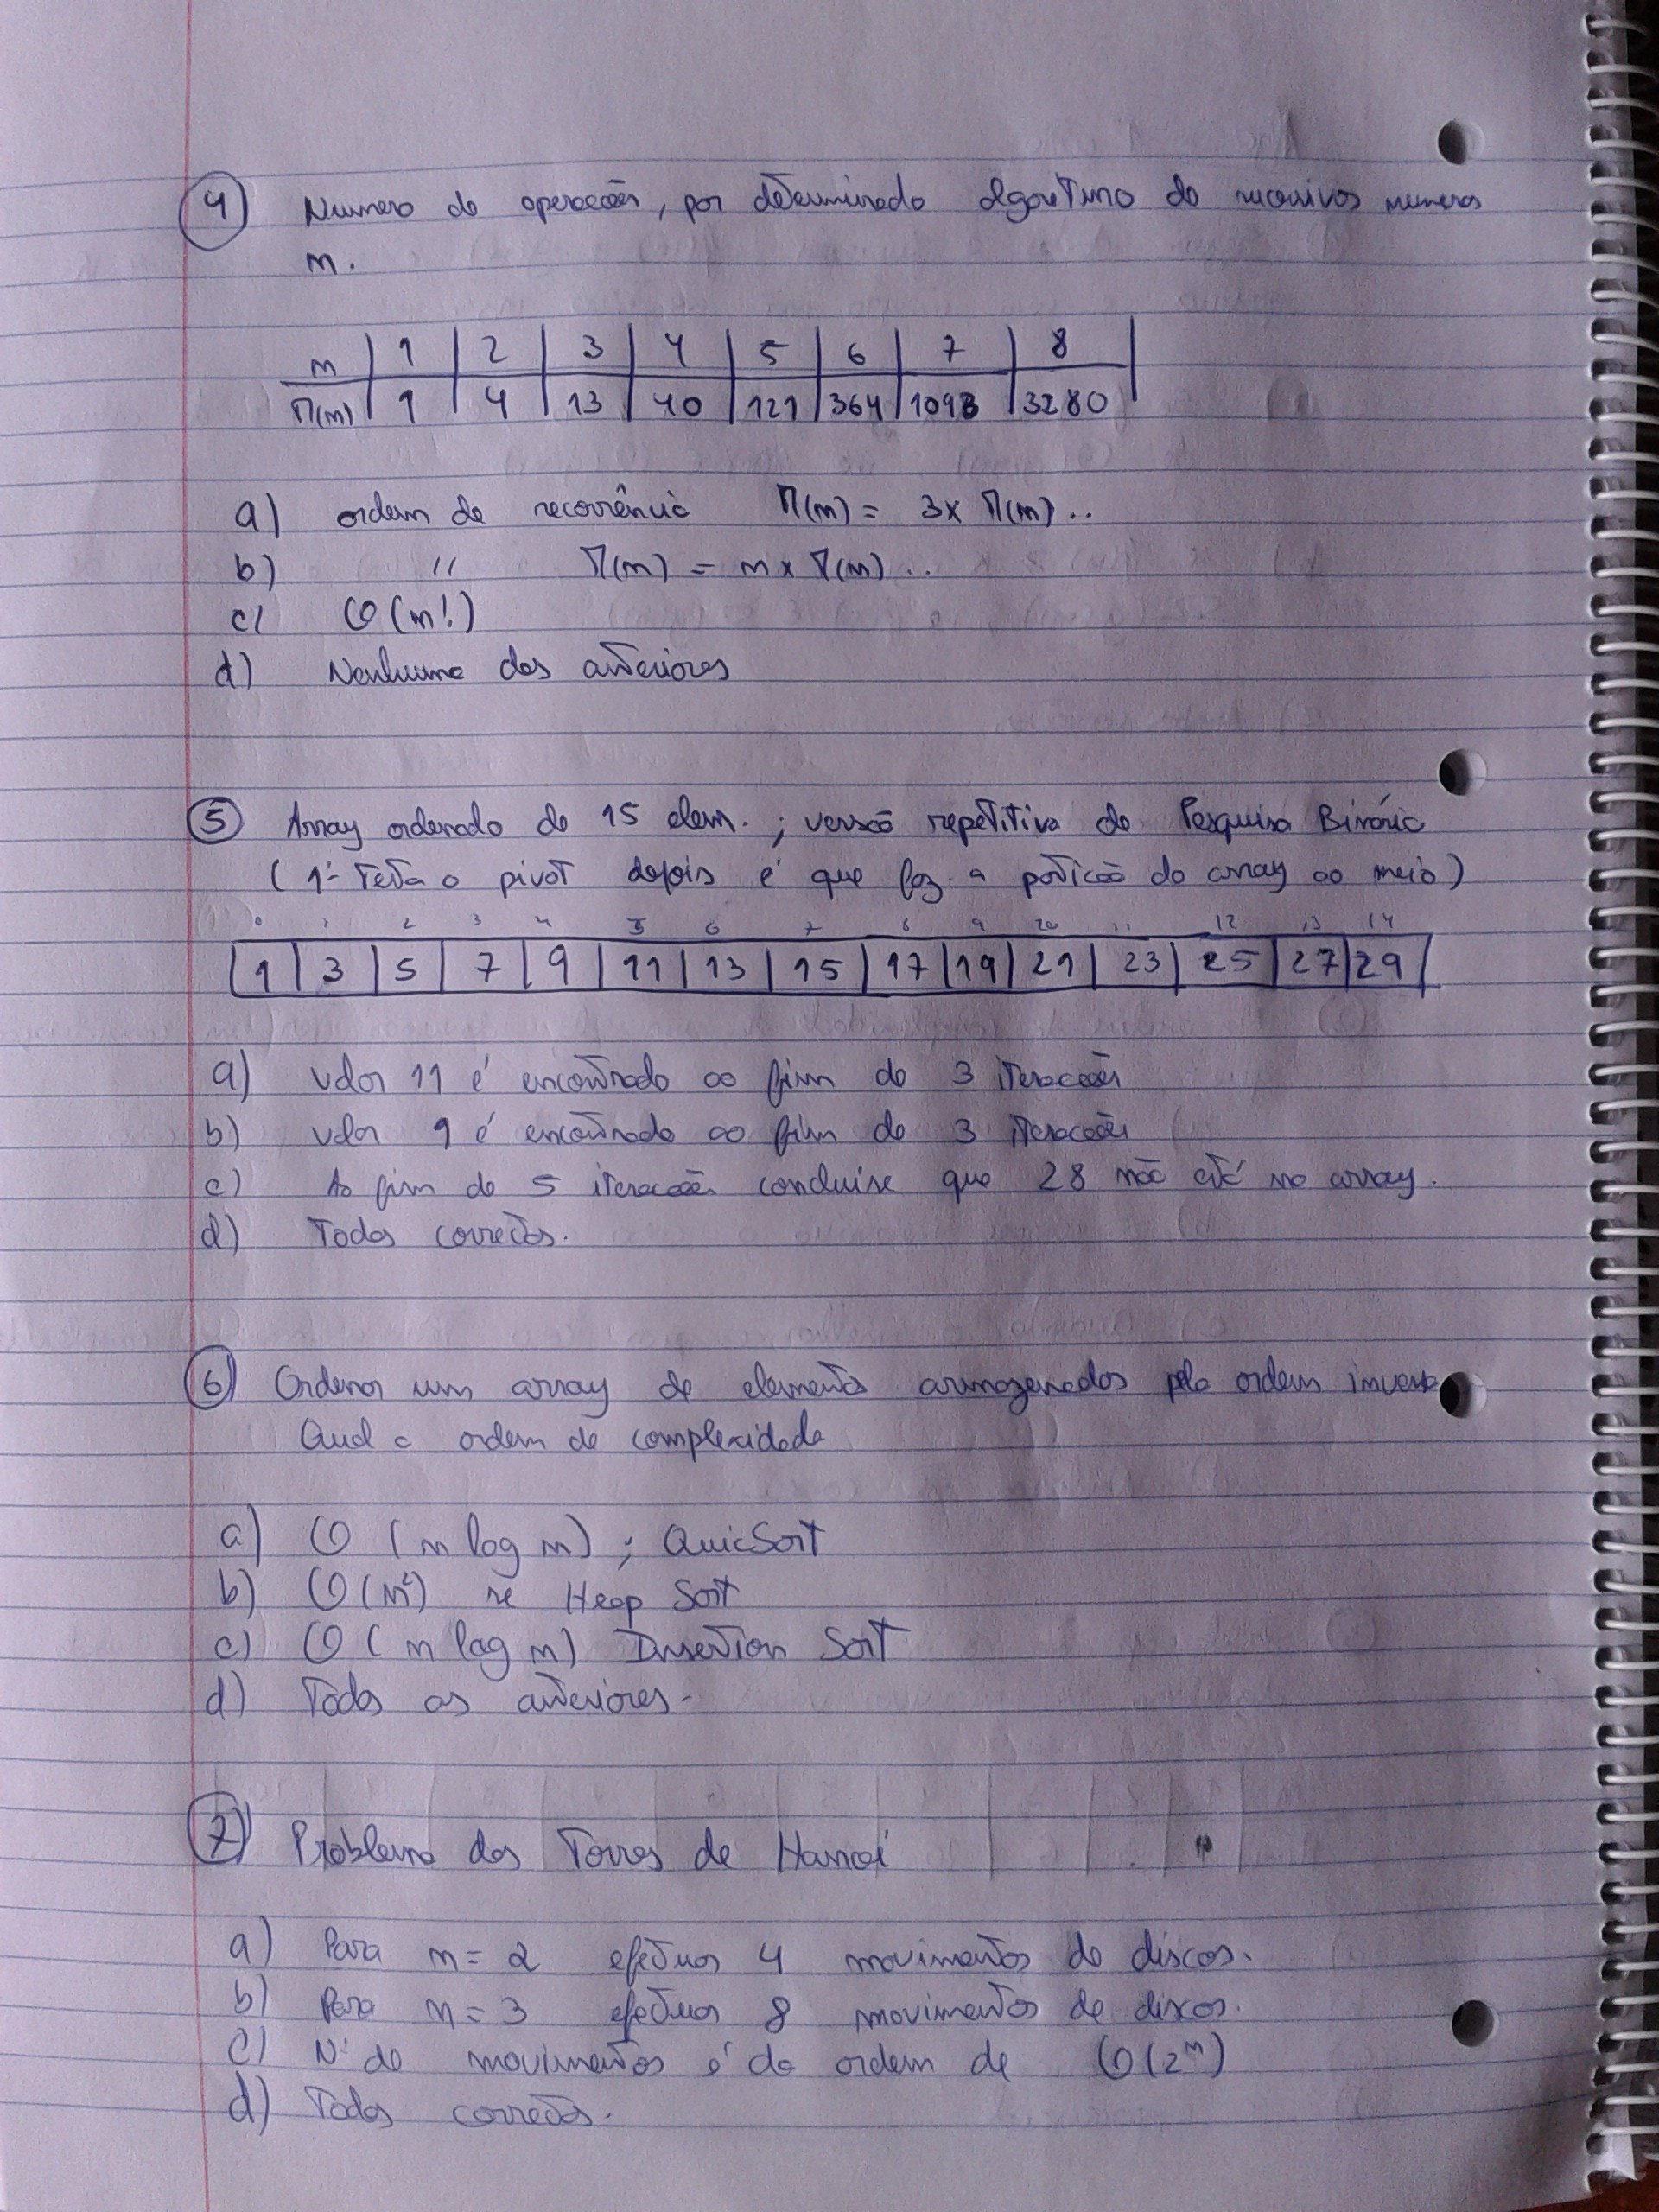 4 Numero de operações, por determinado algoritimo de sucessivos numeros
n.
n | 1 | 2 | 3 | 4 | 5 | 6 | 7 | 8
M(n) | 1 | 4 | 13 | 40 | 121 | 364 | 1093 | 3280
a) ordem de recorrência M(n) = 3x M(n)..
b) " M(n) = n x M(n)..
c) O(n!)
d) Nenhuma das anteriores
5 Array ordenado de 15 elem. ; versão repetitiva da Pesquisa Binária
(1º Testa o pivot depois é que faz a partição do array ao meio)
0 1 2 3 4 5 6 7 8 9 10 11 12 13 14
1 | 3 | 5 | 7 | 9 | 11 | 13 | 15 | 17 | 19 | 21 | 23 | 25 | 27 | 29
a) valor 11 é encontrado ao fim de 3 iterações
b) valor 9 é encontrado ao fim de 3 iterações
c) Ao fim de 5 iterações concluise que 28 não está no array.
d) Todas corretas.
6 Ordenar um array de elementos armazenados pela ordem inversa
Qual a ordem de complexidade
a) O (n log n) ; QuicSort
b) O(n²) se Heap Sort
c) O (n log n) Insertion Sort
d) Todas as anteriores.
7 Problema das Torres de Hanoi
a) Para n = 2 efetuas 4 movimentos de discos.
b) Para n = 3 efetuas 8 movimentos de discos.
c) Nº de movimentos é da ordem de O(2ⁿ)
d) Todas corretas.